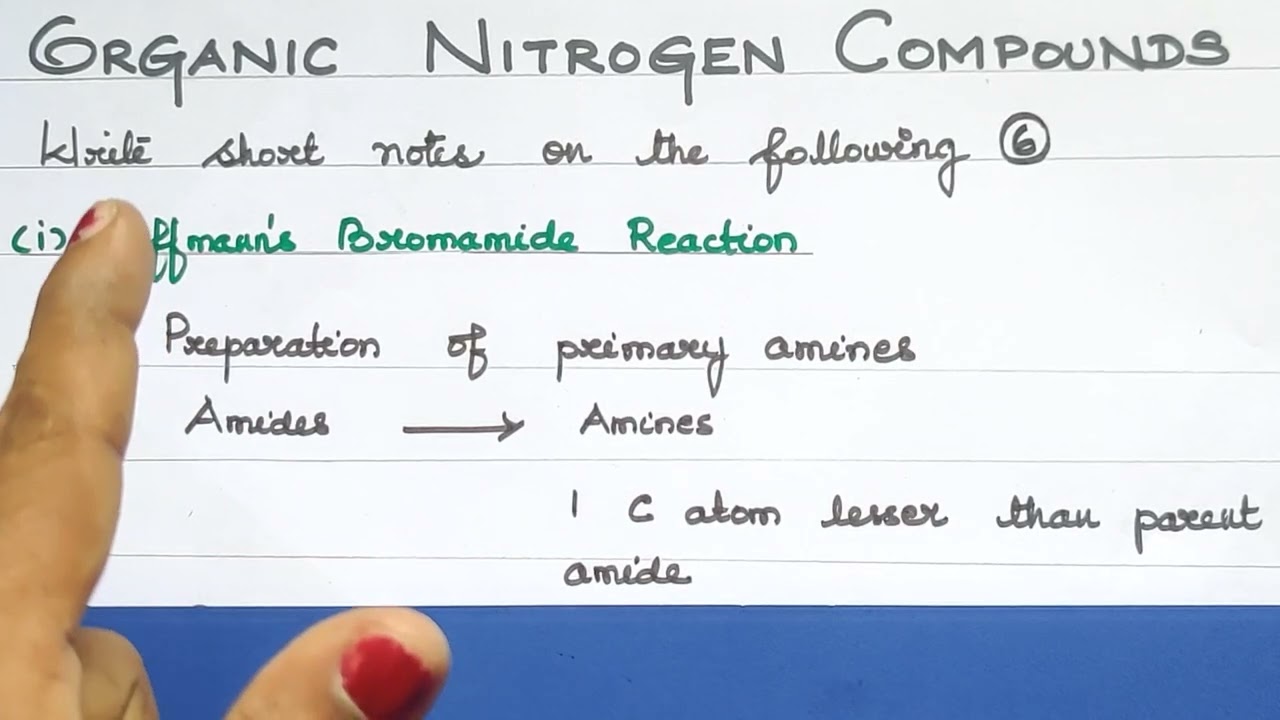 ORGANIC NITROGEN COMPOUNDS
Write short notes on the following 6
(i) ffmann's Bromamide Reaction
Preparation of primary amines
Amides → Amines
1 C atom lesser than parent
amide